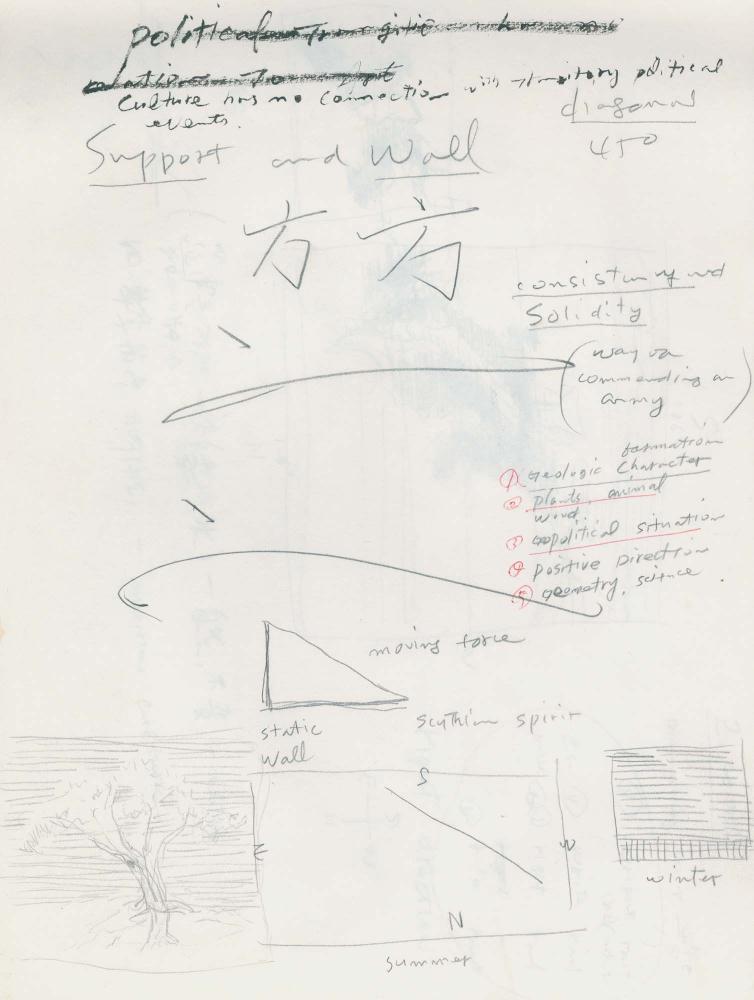 political
Culture has no connection with transitory political
events.
diagonal
450
Support and Wall
方 方
consistency and
Solidity
(way on
commending an
army)
formation
① Geologic Character
② plants, animal
wood.
③ Geopolitical situation
④ positive Direction
⑤ geometry, science
moving force
static
wall
scythian spirit
S
E
W
N
summer
winter